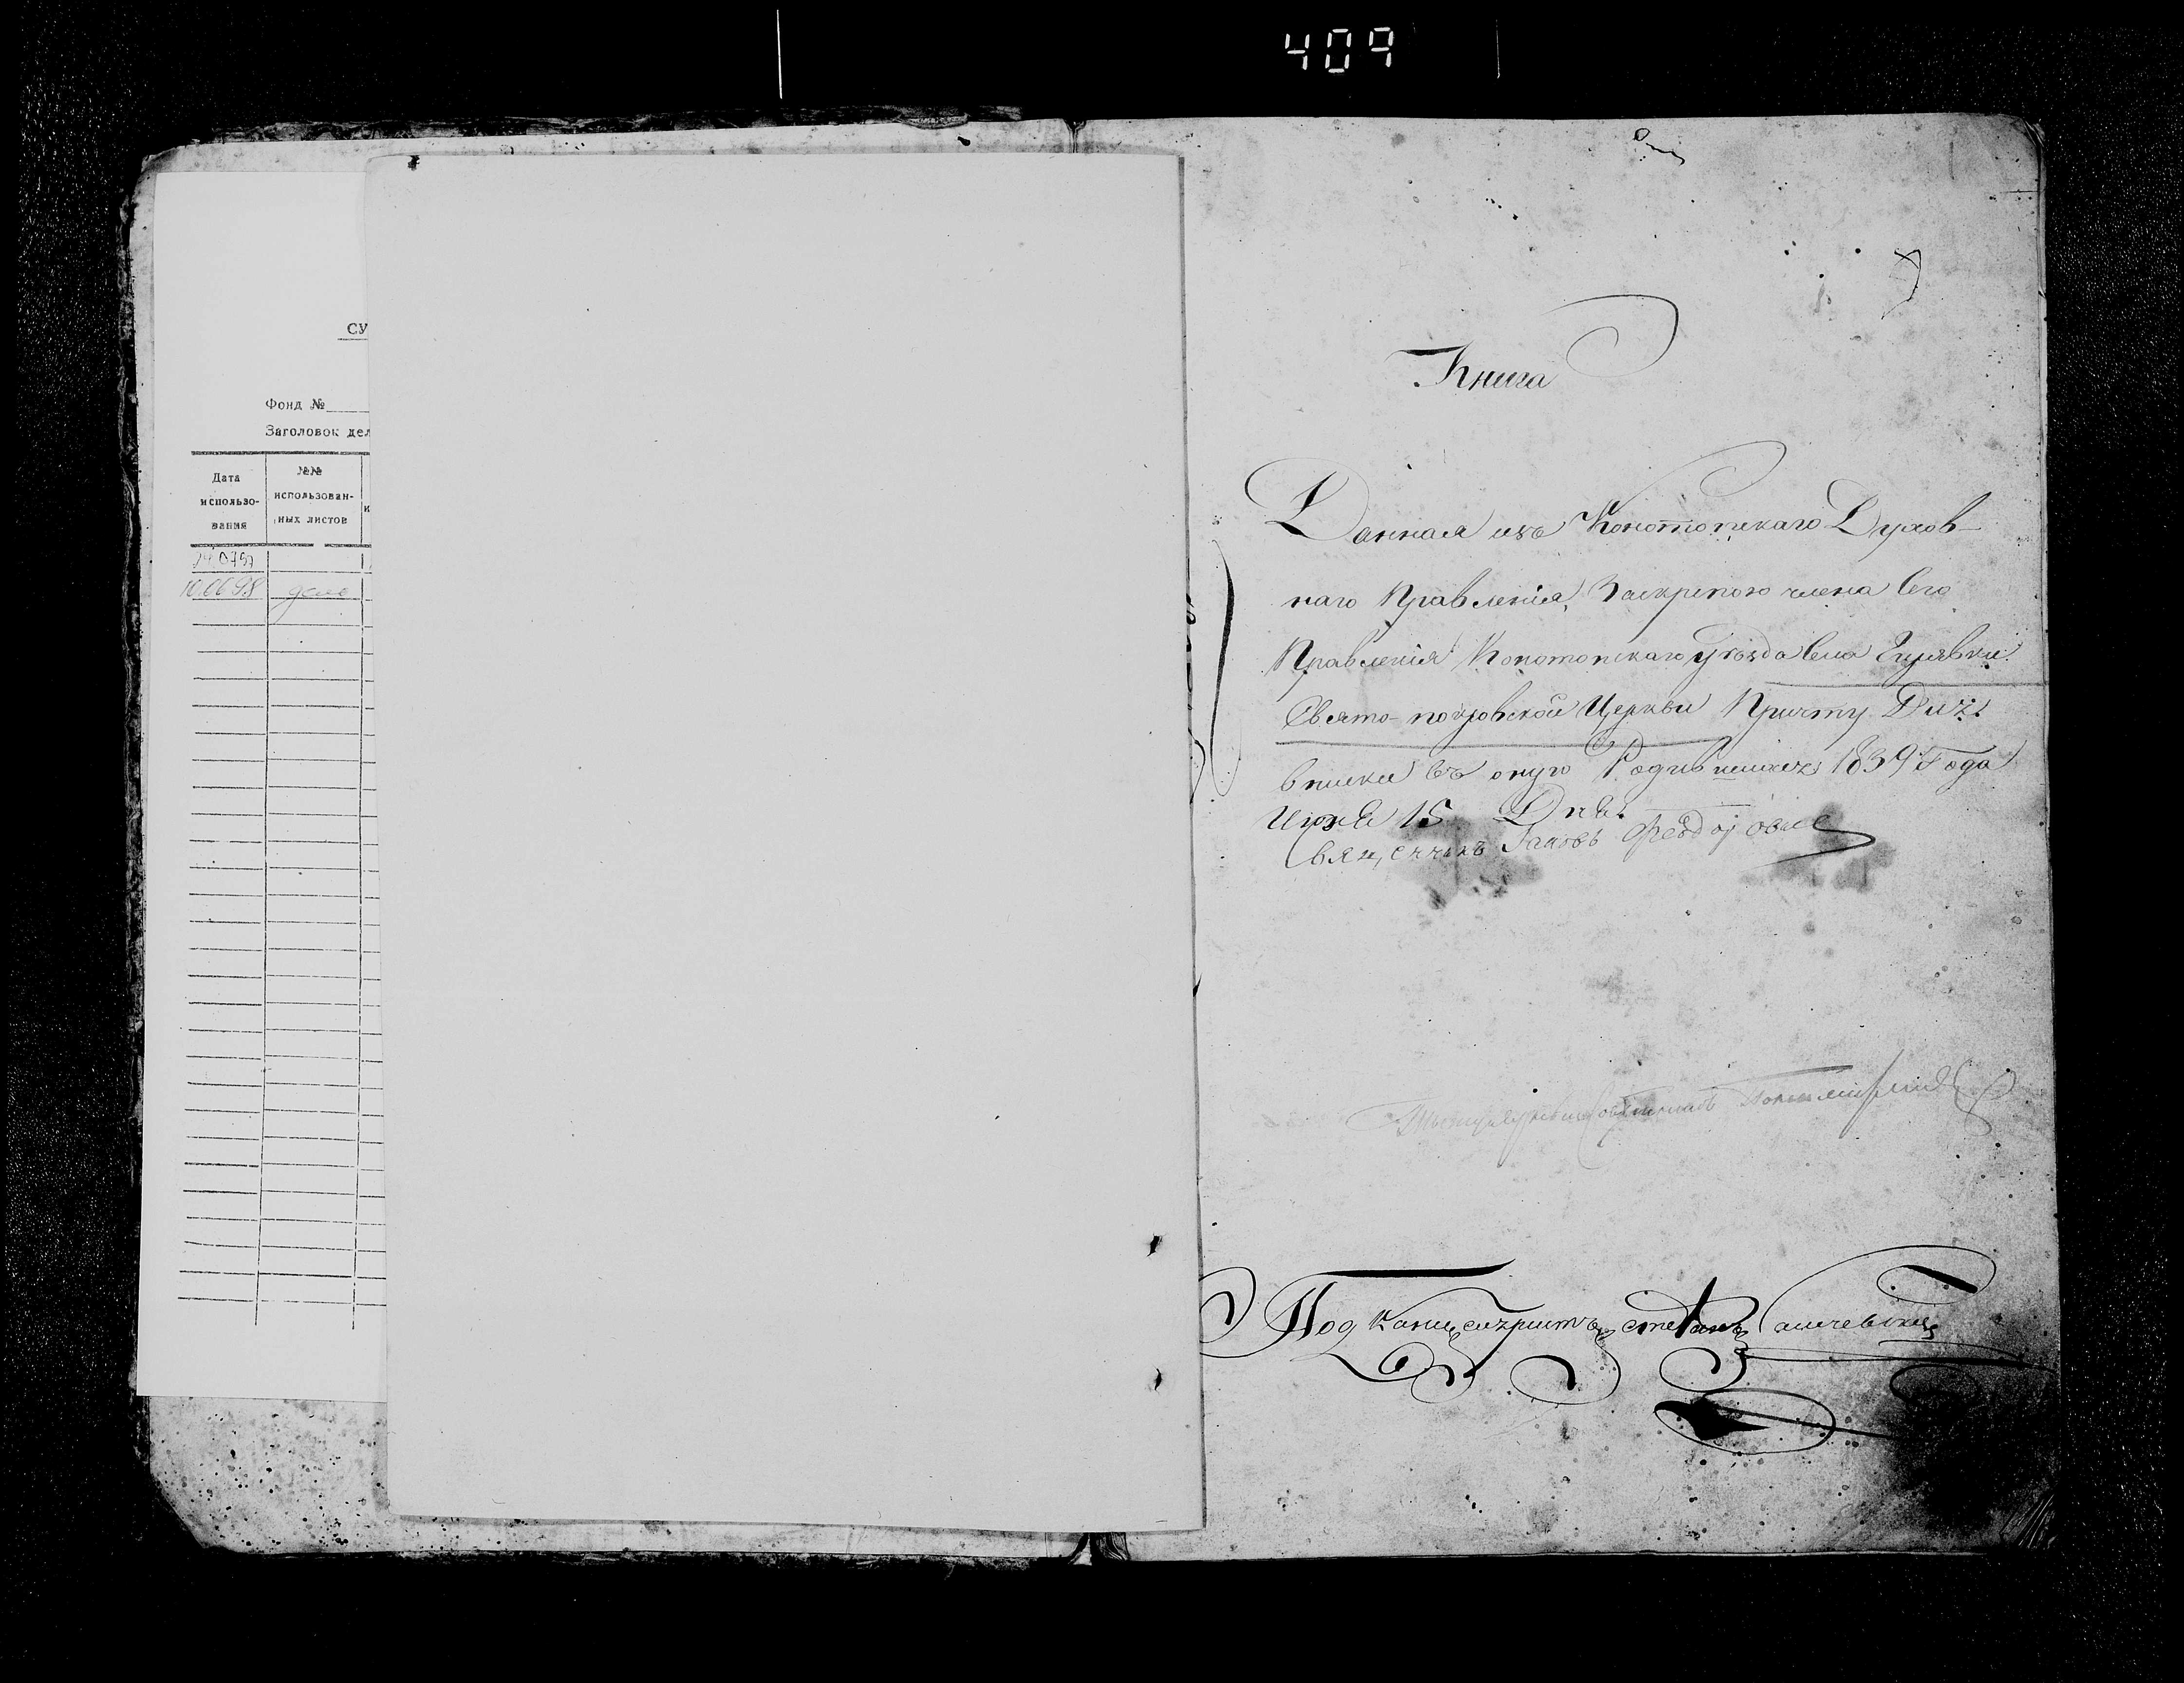 409
СУ
Фонд №
Заголовок дел
Дата использо-вания
№№ использован-ных листов
10.06.98 дело
Книга
Данная изъ Конотопскаго Духов-
наго Правленія, Заскрепою члена Сего
Правленія Конотопскаго уѣзда Села
Свято-покровской Церкви Причту Для
вписки въ оную Родившихся 1839 Года
15 Дня
Священникъ Іаковъ
Подканцеляристъ стефанъ